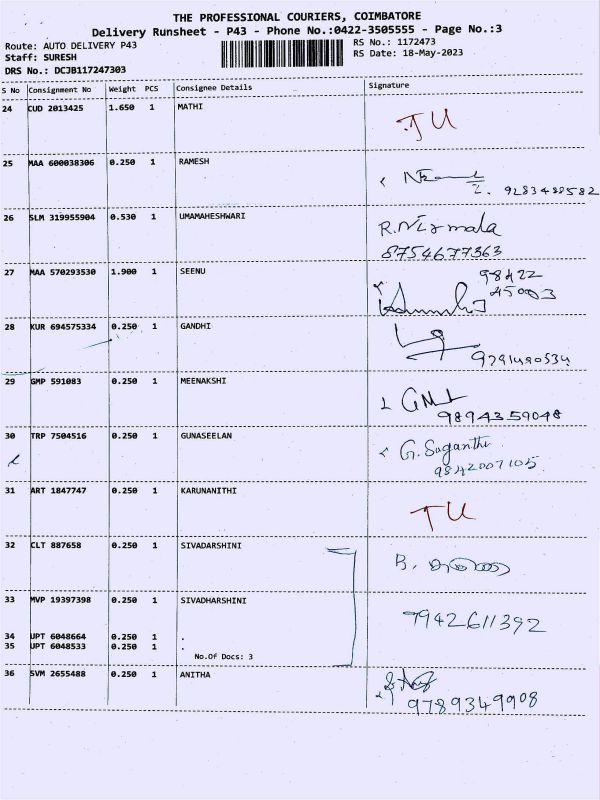 THE PROFESSIONAL COURIERS, COIMBATORE
Delivery Runsheet - P43 - Phone No.:0422-3505555 - Page No.:3
Route: AUTO DELIVERY P43
RS No.: 1172473
Staff: SURESH
RS Date: 18-May-2023
DRS No.: DCJB117247303
S No Consignment No Weight PCS Consignee Details Signature
24 CUD 2013425 1.650 1 MATHI
TU
25 MAA 600038306 0.250 1 RAMESH
9283488582
26 SLM 319955904 0.530 1 UMAMAHESHWARI
R.Nirmala
8754677363
27 MAA 570293530 1.900 1 SEENU
98422
45003
28 KUR 694575334 0.250 1 GANDHI
9791490534
29 GMP 591083 0.250 1 MEENAKSHI
9894359048
30 TRP 7504516 0.250 1 GUNASEELAN
G. Suganthi
9842007105
31 ART 1847747 0.250 1 KARUNANITHI
TU
32 CLT 887658 0.250 1 SIVADARSHINI
B.
33 MVP 19397398 0.250 1 SIVADHARSHINI
9942611392
34 UPT 6048664 0.250 1 .
35 UPT 6048533 0.250 1 .
No.Of Docs: 3
36 SVM 2655488 0.250 1 ANITHA
9789349908